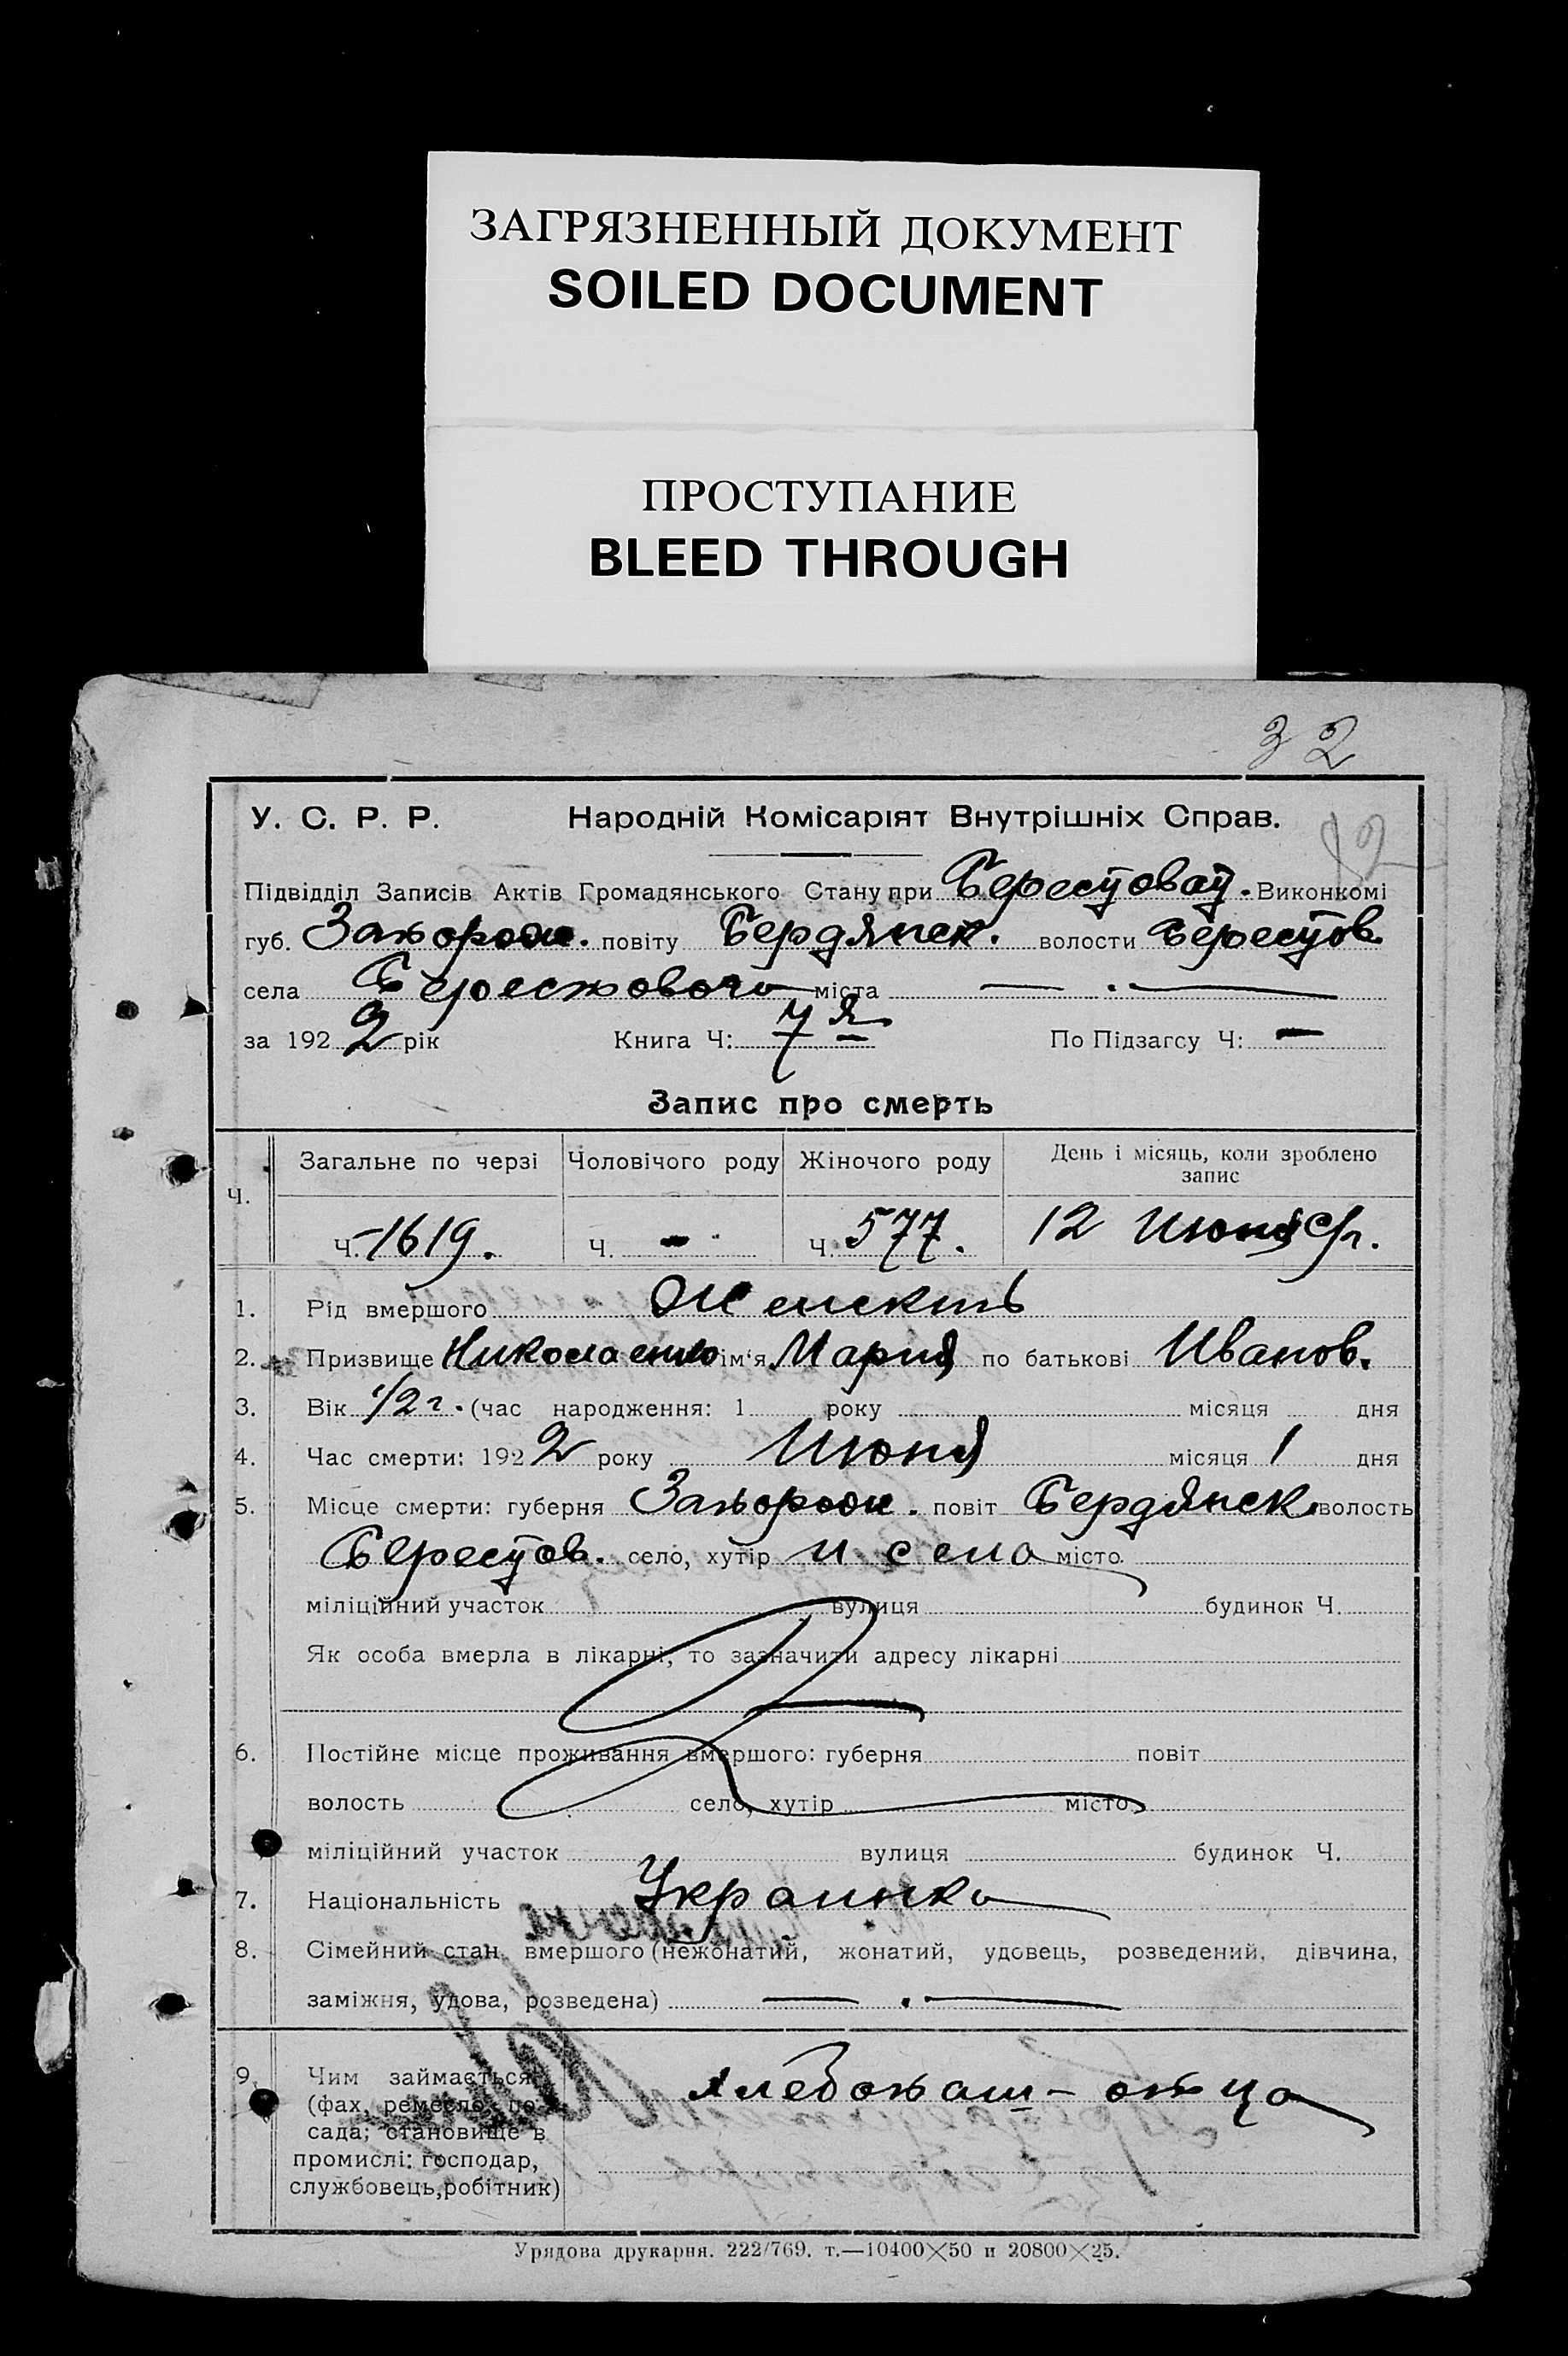 ЗАГРЯЗНЕННЫЙ ДОКУМЕНТ
SOILED DOCUMENT
ПРОСТУПАНИЕ
BLEED THROUGH
32
У. С. Р. Р. Народній Комісаріят Внутрішніх Справ.
Підвідділ Записів Актів Громадянського Стану при Берестоват. Виконкомі
губ. Запорож. повіту Бердянск. волости Берестов.
села Берестового міста — . —
за 1922 рік Книга Ч: 7я По Підзагсу Ч: —
Запис про смерть
Ч. Загальне по черзі Чоловічого роду Жіночого роду День і місяць, коли зроблено запис
Ч. 1619. Ч. — Ч. 577. 12 Июня
1. Рід вмершого Женскить
2. Призвище Николаенко ім‘я Мария по батькові Иванов.
3. Вік 1/2 г. (час народження: 1 року місяця дня
4. Час смерти: 1922 року Июня місяця 1 дня
5. Місце смерти: губерня Запорож. повіт Бердянск. волость
Берестов. село, хутір и село місто
міліційний участок вулиця будинок Ч.
Як особа вмерла в лікарні, то зазначити адресу лікарні
6. Постійне місце проживання вмершого: губерня повіт
волость село, хутір місто
міліційний участок вулиця будинок Ч.
7. Національність Украинка
8. Сімейний стан вмершого (нежонатий, жонатий, удовець, розведений, дівчина,
заміжня, удова, розведена) — . —
9. Чим займається
(фах, ремесло, по-
сада; становище в
промислі: господар,
службовець,робітник)
хлебопаш — отца
Урядова друкарня. 222/769. т.—10400×50 и 20800×25.